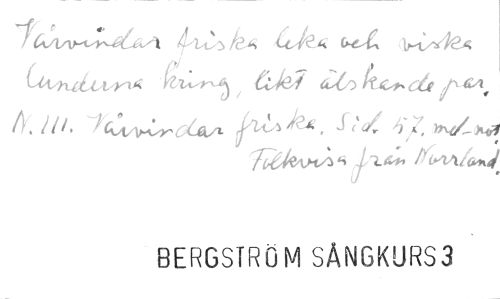 Vårvindar friska leka och viska
lunderna kring, likt älskande par.
N. 111. Vårvindar friska. Sid. 57. md-not.
Folkvisa från Norrland.
BERGSTRÖM SÅNGKURS 3